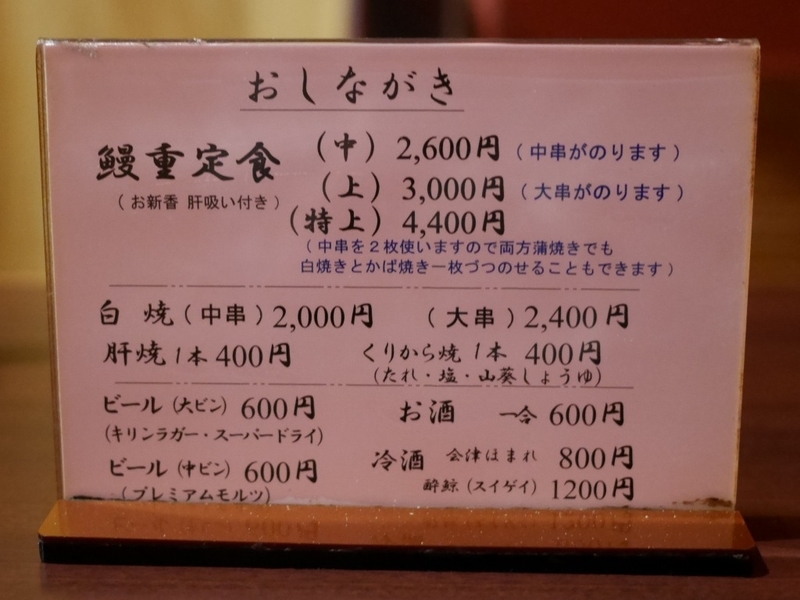 おしながき
鰻重定食 (中) 2,600円 (中串がのります)
(お新香 肝吸い付き) (上) 3,000円 (大串がのります)
(特上) 4,400円
(中串を2枚使いますので両方蒲焼きでも
白焼きとかば焼き一枚づつのせることもできます)
白 焼 (中串) 2,000円 (大串) 2,400円
肝焼 1本 400円 くりから焼 1本 400円
(たれ・塩・山葵しょうゆ)
ビール (大ビン) 600円 お酒 一合 600円
(キリンラガー・スーパードライ)
冷酒 会津ほまれ 800円
ビール (中ビン) 600円 酔鯨 (スイゲイ) 1200円
(プレミアムモルツ)